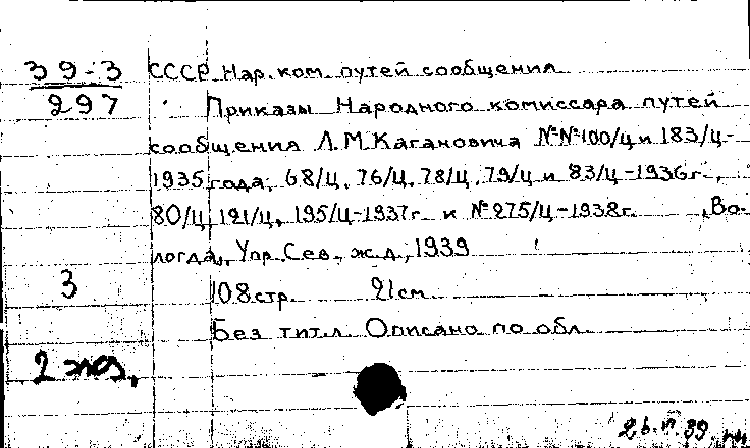 39-3
297
СССР. Нар. ком. путей сообщения
Приказы Народного комиссара путей
сообщения Л.М. Кагановича №№100/ц и 183/ц-
1935 года, 68/ц, 76/ц, 78/ц, 79/ц и 83/ц-1936г.,
80/ц, 121/ц, 195/ц-1937г. и №275/ц-1938г. , Во-
логда, Упр. Сев. ж.д., 1939
3
108 стр. 21 см
Без тит.л. Описано по обл.
2 экз.